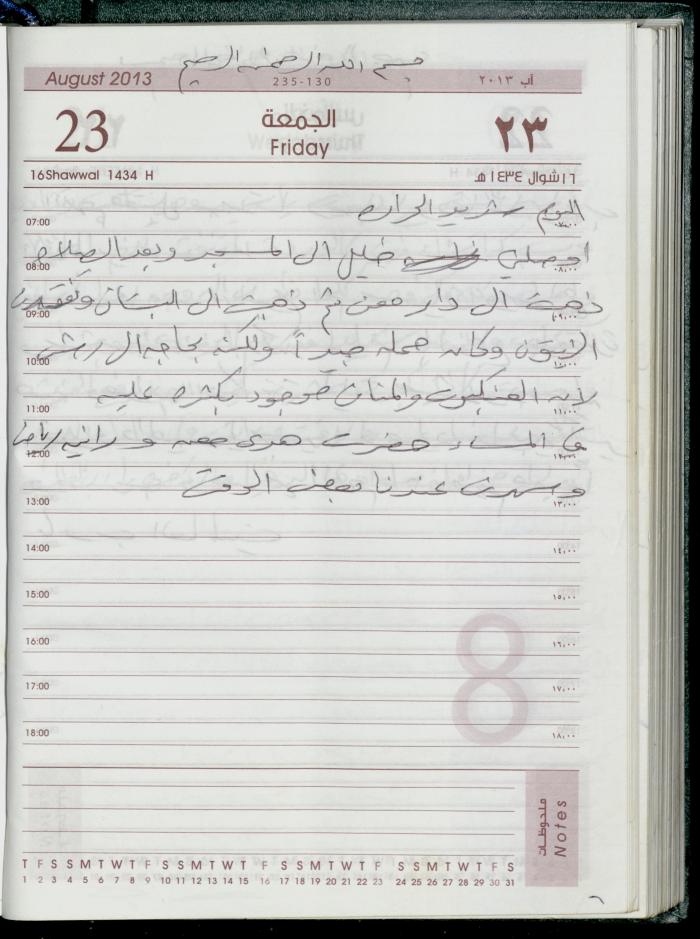 بسم الله الرحمن الرحيم
August 2013
235-130
آب ٢٠١٣
23
الجمعة
Friday
٢٣
16Shawwal 1434 H
١٦شوال ١٤٣٤ هـ
اليوم شديد الحراره
07:00 ٠٧،٠٠
اوصلني خليل الى المسجد وبعد الصلاه
08:00 ٠٨،٠٠
ذهبت الى دار معن ثم ذهبت الى البستان وتفقدت
09:00 ٠٩،٠٠
الزيتون وكان حمله جيداً ولكنه بحاجه الى رش
10:00 ١٠،٠٠
لأن العنكبوت والمنان موجود بكثره عليه
11:00 ١١،٠٠
في المساء حضرت هدى معن و رانيه رياض
12:00 ١٢،٠٠
وسهرن عندنا بعض الوقت
13:00 ١٣،٠٠
14:00 ١٤،٠٠
15:00 ١٥،٠٠
16:00 ١٦،٠٠
17:00 ١٧،٠٠
18:00 ١٨،٠٠
8
ملحوظات
Notes
T F S S M T W T F S S M T W T F S S M T W T F S S M T W T F S
1 2 3 4 5 6 7 8 9 10 11 12 13 14 15 16 17 18 19 20 21 22 23 24 25 26 27 28 29 30 31